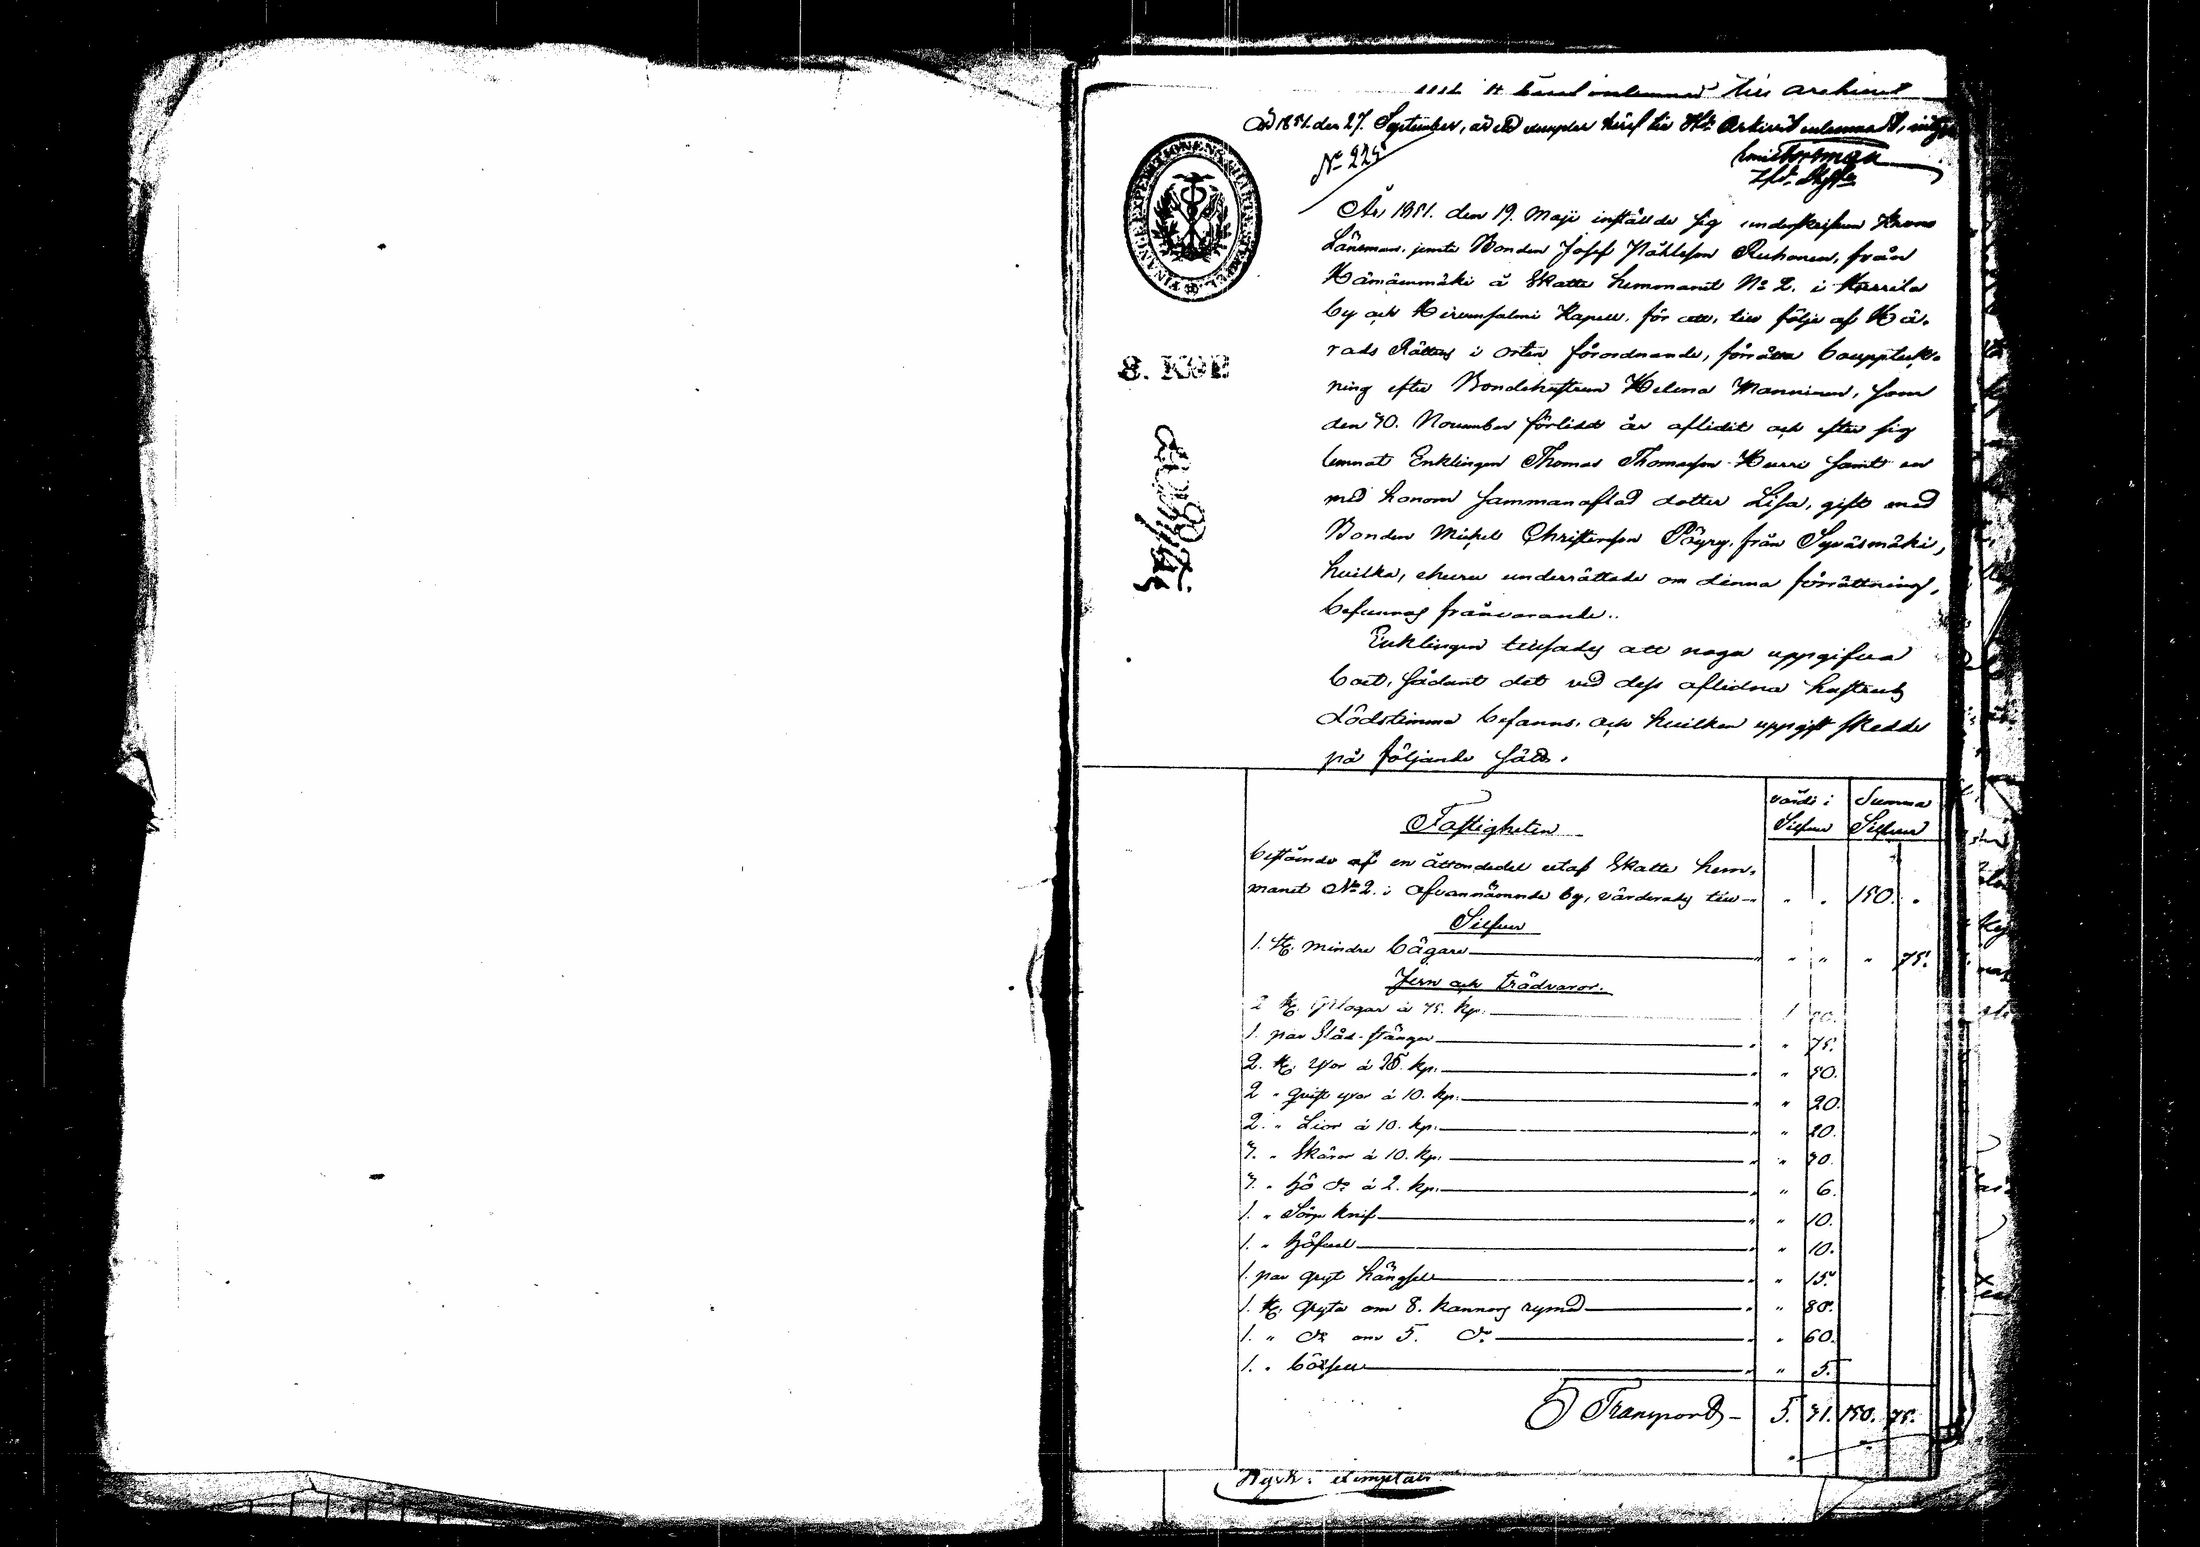 till archivet
År 1851. den 27. September, är ett exemplar häraf till Hds Arkivet inlemnadt, intyga
No 225
FINANCE EXPEDITIONENS CHARTÆ STEMPEL
År 1851. den 19. Maji inställde sig underskrifven Krono
Länsman, jemte Bonden Josef Påhlsson Ruhonen, från
Hämäenmäki å Skatte hemmanet No 2. i
by och Kapell, för att, till följe af Hä-
rads Rättens i orten förordnande, förrätta bouppteck-
ning efter Bondehustrun Helena Manninen, som
den 30. November förlidet år aflidit och efter sig
lemnat Enklingen Thomas Thomasson Hurri samt en
med honom sammanaflad dotter Lisa, gift med
Bonden Michel Christersson Pöyry, från Syväsmäki,
hvilka, ehuru underrättade om denna förrättning,
befunnos frånvarande.
8. KOP.
Enklingen tillsades att noga uppgifva
boet, sådant det vid dess aflidna hustrus
dödstimma befanns, och hvilken uppgift skedde
på följande sätt.
värde i Silfver Summa Silfver
Fastigheten
bestående af en åttondedel utaf Skatte hem-
manet No 2. i ofvannämnde by, värderades till " " 150. "
Silfver
1. st. mindre bägare " " " 75.
Jern och trädvaror.
2 st. à 75. kp. 1 50.
1. par Slåd-stänger " 75.
2. st. yxor à 25. kp. " 50.
2 " qvist yxor à 10. kp. " 20.
2. " Lior à 10. kp. " 20.
3. " Skäror à 10. kp. " 30.
3. " hö do à 2. kp. " 6.
1. " knif " 10.
1. " " 10.
1. par gryt hängslor " 15.
1. st. gryta om 8. kannors rymd " 80.
1. " do om 5. do " 60.
1. " " 5.
Transport 5. 31. 150. 75.